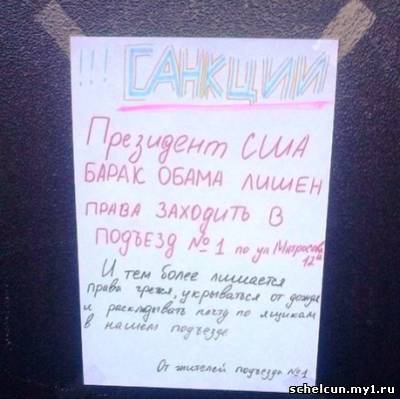 !!! САНКЦИИ
Президент США
БАРАК ОБАМА ЛИШЕН
ПРАВА ЗАХОДИТЬ В
ПОДЪЕЗД №1 по ул Матросова
12а
И тем более лишается
права греться, укрываться от дождя
и раскладывать почту по ящикам
в нашем подъезде
От жителей подъезда №1
schelcun.my1.ru